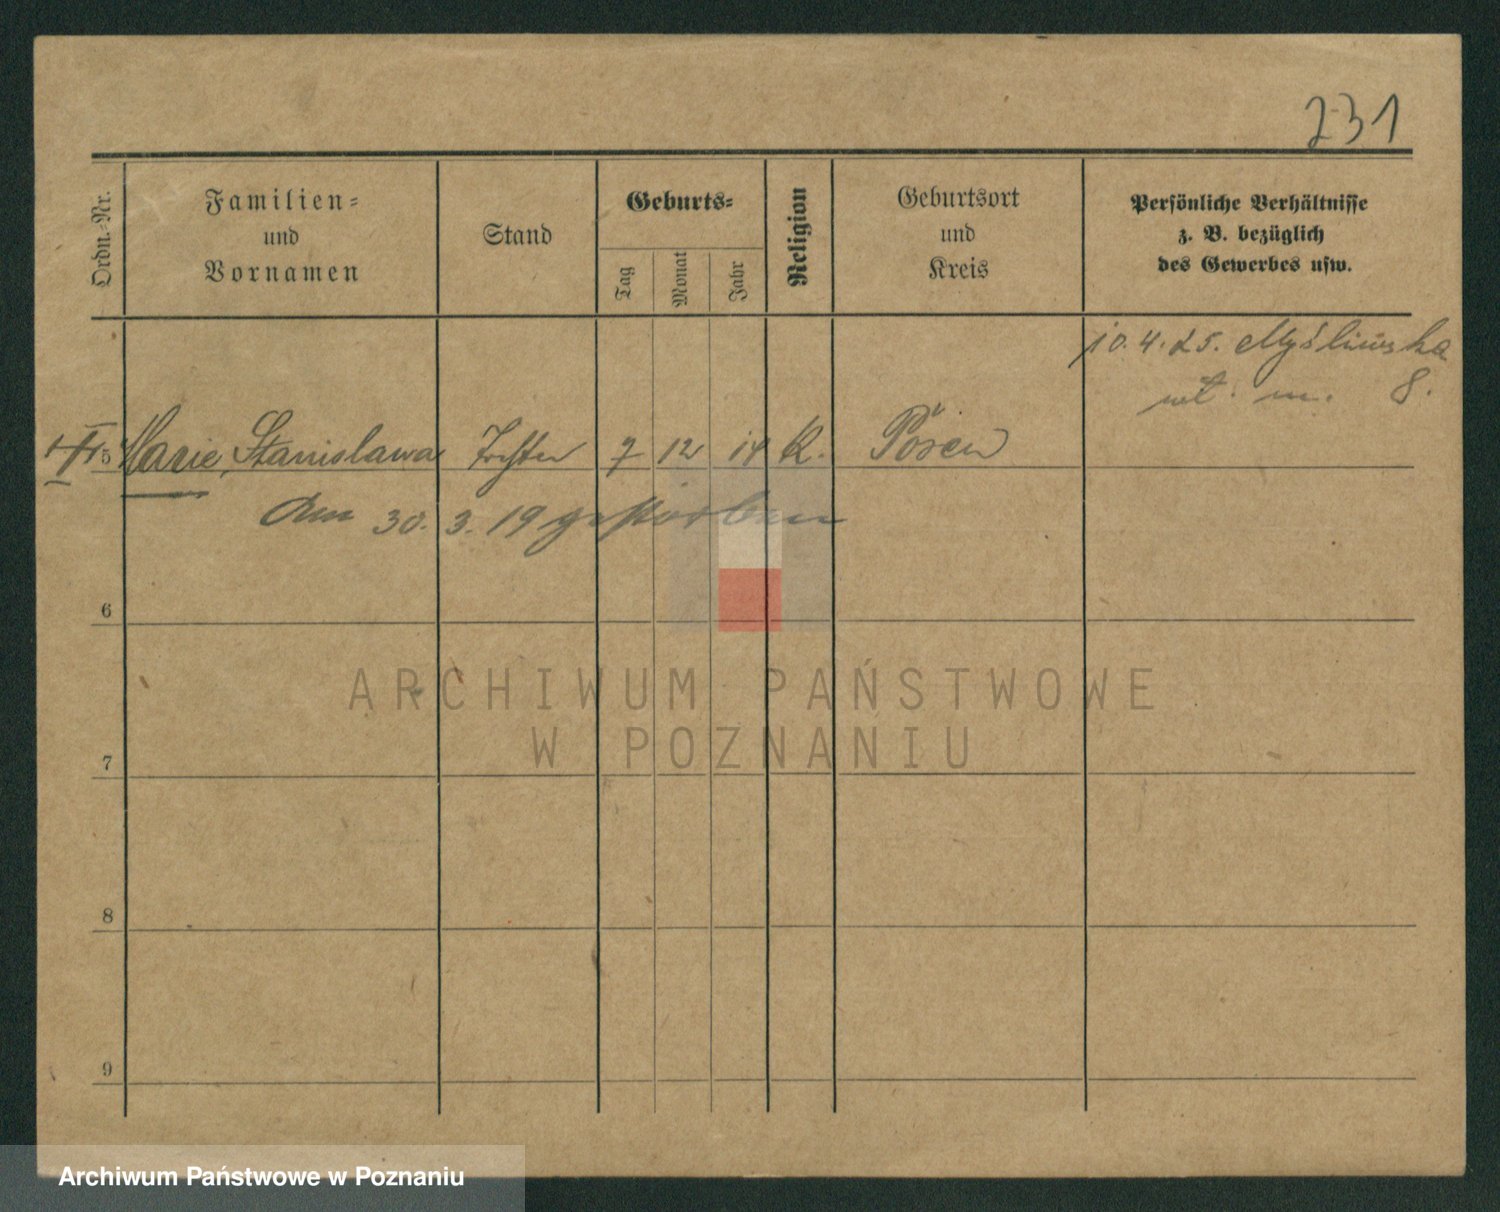 231
Ordn.-Nr.
Familien-
und
Vornamen
Stand
Geburts-
Tag
Monat
Jahr
Religion
Geburtsort
und
Kreis
Persönliche Verhältnisse
z. B. bezüglich
des Gewerbes usw.
10.4.25. Myśliwska
m. 8.
5 Marie Stanislawa Tochter 7 12 14 K. Posen
Am 30. 3. 19 gestorben
6
ARCHIWUM PAŃSTWOWE
W POZNANIU
7
8
9
Archiwum Państwowe w Poznaniu